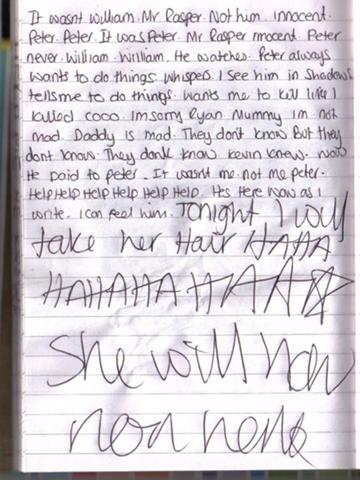 It wasnt william. Mr Rasper. Not him. innocent.
Peter. Peter. It was Peter. Mr Rasper innocent. Peter
never. William. William. He watches. Peter always
wants to do things. Whispers. I see him in shadows
tells me to do things. Wants me to kill like I
killed coco. Im sorry Ryan Mummy im not
mad. Daddy is mad. They dont know But they
dont know. They dont know Kevin knew. Now
He paid to peter. It wasnt me. not me peter.
HELP HELP HELP HELP HELP HELP. Hes Here Now as I
write. I can feel him. Tonight I will
take her Hair HAHA
HAHAHAHAHAHA
She will